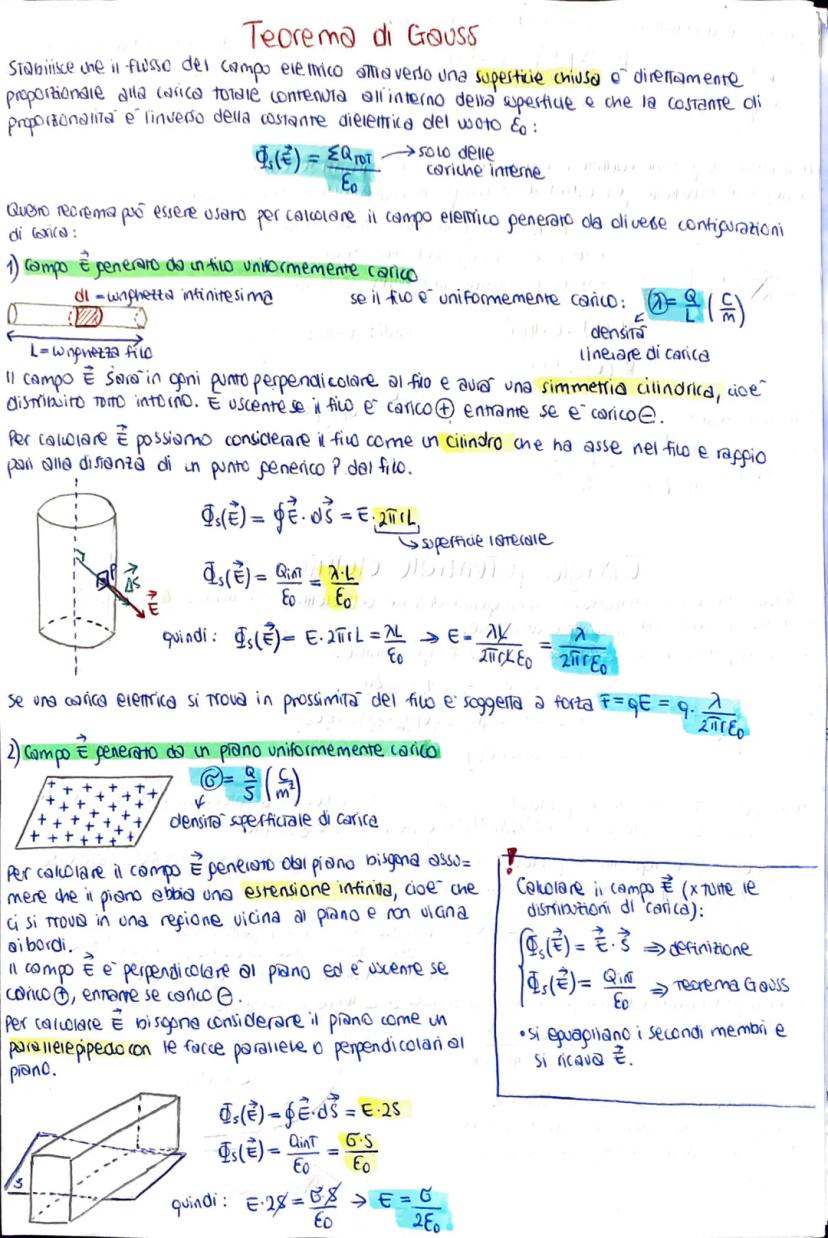 Teorema di Gauss
Stabilisce che il flusso del campo elettrico attraverso una superficie chiusa e' direttamente
proporzionale alla carica totale contenuta all'interno della superficie e che la costante di
proporzionalità e' l'inverso della costante dielettrica del vuoto ε₀:
Φₛ(E⃗) = ΣQTOT / ε₀ → solo delle
cariche interne
Questo teorema può essere usato per calcolare il campo elettrico generato da diverse configurazioni
di carica:
1) Campo E⃗ generato da un filo uniformemente carico
dl = lunghetta infinitesima
se il filo e' uniformemente carico: λ = Q/L (C/m)
densità
lineare di carica
L = lunghezza filo
Il campo E⃗ sarà in ogni punto perpendicolare al filo e avrà una simmetria cilindrica, cioe'
distribuito tutto intorno. E uscente se il filo e' carico ⊕ entrante se e' carico ⊖.
Per calcolare E⃗ possiamo considerare il filo come un cilindro che ha asse nel filo e raggio
pari alla distanza di un punto generico P dal filo.
r P ΔS⃗ E⃗
Φₛ(E⃗) = ∮E⃗·dS⃗ = E·2πrL
superficie laterale
Φₛ(E⃗) = Qint/ε₀ = λ·L/ε₀
quindi: Φₛ(E⃗) = E·2πrL = λL/ε₀ → E = λL/2πrLε₀ = λ/2πrε₀
Se una carica elettrica si trova in prossimità del filo e' soggetta a forza F = qE = q· λ/2πrε₀
2) Campo E⃗ generato da un piano uniformemente carico
σ = Q/S (C/m²)
densità superficiale di carica
Per calcolare il campo E⃗ generato dal piano bisogna assu=
mere che il piano abbia una estensione infinita, cioe' che
ci si trova in una regione vicina al piano e non vicina
ai bordi.
Il campo E⃗ e' perpendicolare al piano ed e' uscente se
carico ⊕, entrante se carico ⊖.
Per calcolare E⃗ bisogna considerare il piano come un
parallelepipedo con le facce parallele o perpendicolari al
piano.
!
Calcolare il campo E⃗ (x tutte le
distribuzioni di carica):
Φₛ(E⃗) = E⃗·S⃗ ⇒ definizione
Φₛ(E⃗) = Qint/ε₀ ⇒ Teorema Gauss
• si eguagliano i secondi membri e
si ricava E⃗.
S
Φₛ(E⃗) = ∮E⃗·dS⃗ = E·2S
Φₛ(E⃗) = Qint/ε₀ = σ·S/ε₀
quindi: E·2S = σS/ε₀ → E = σ/2ε₀